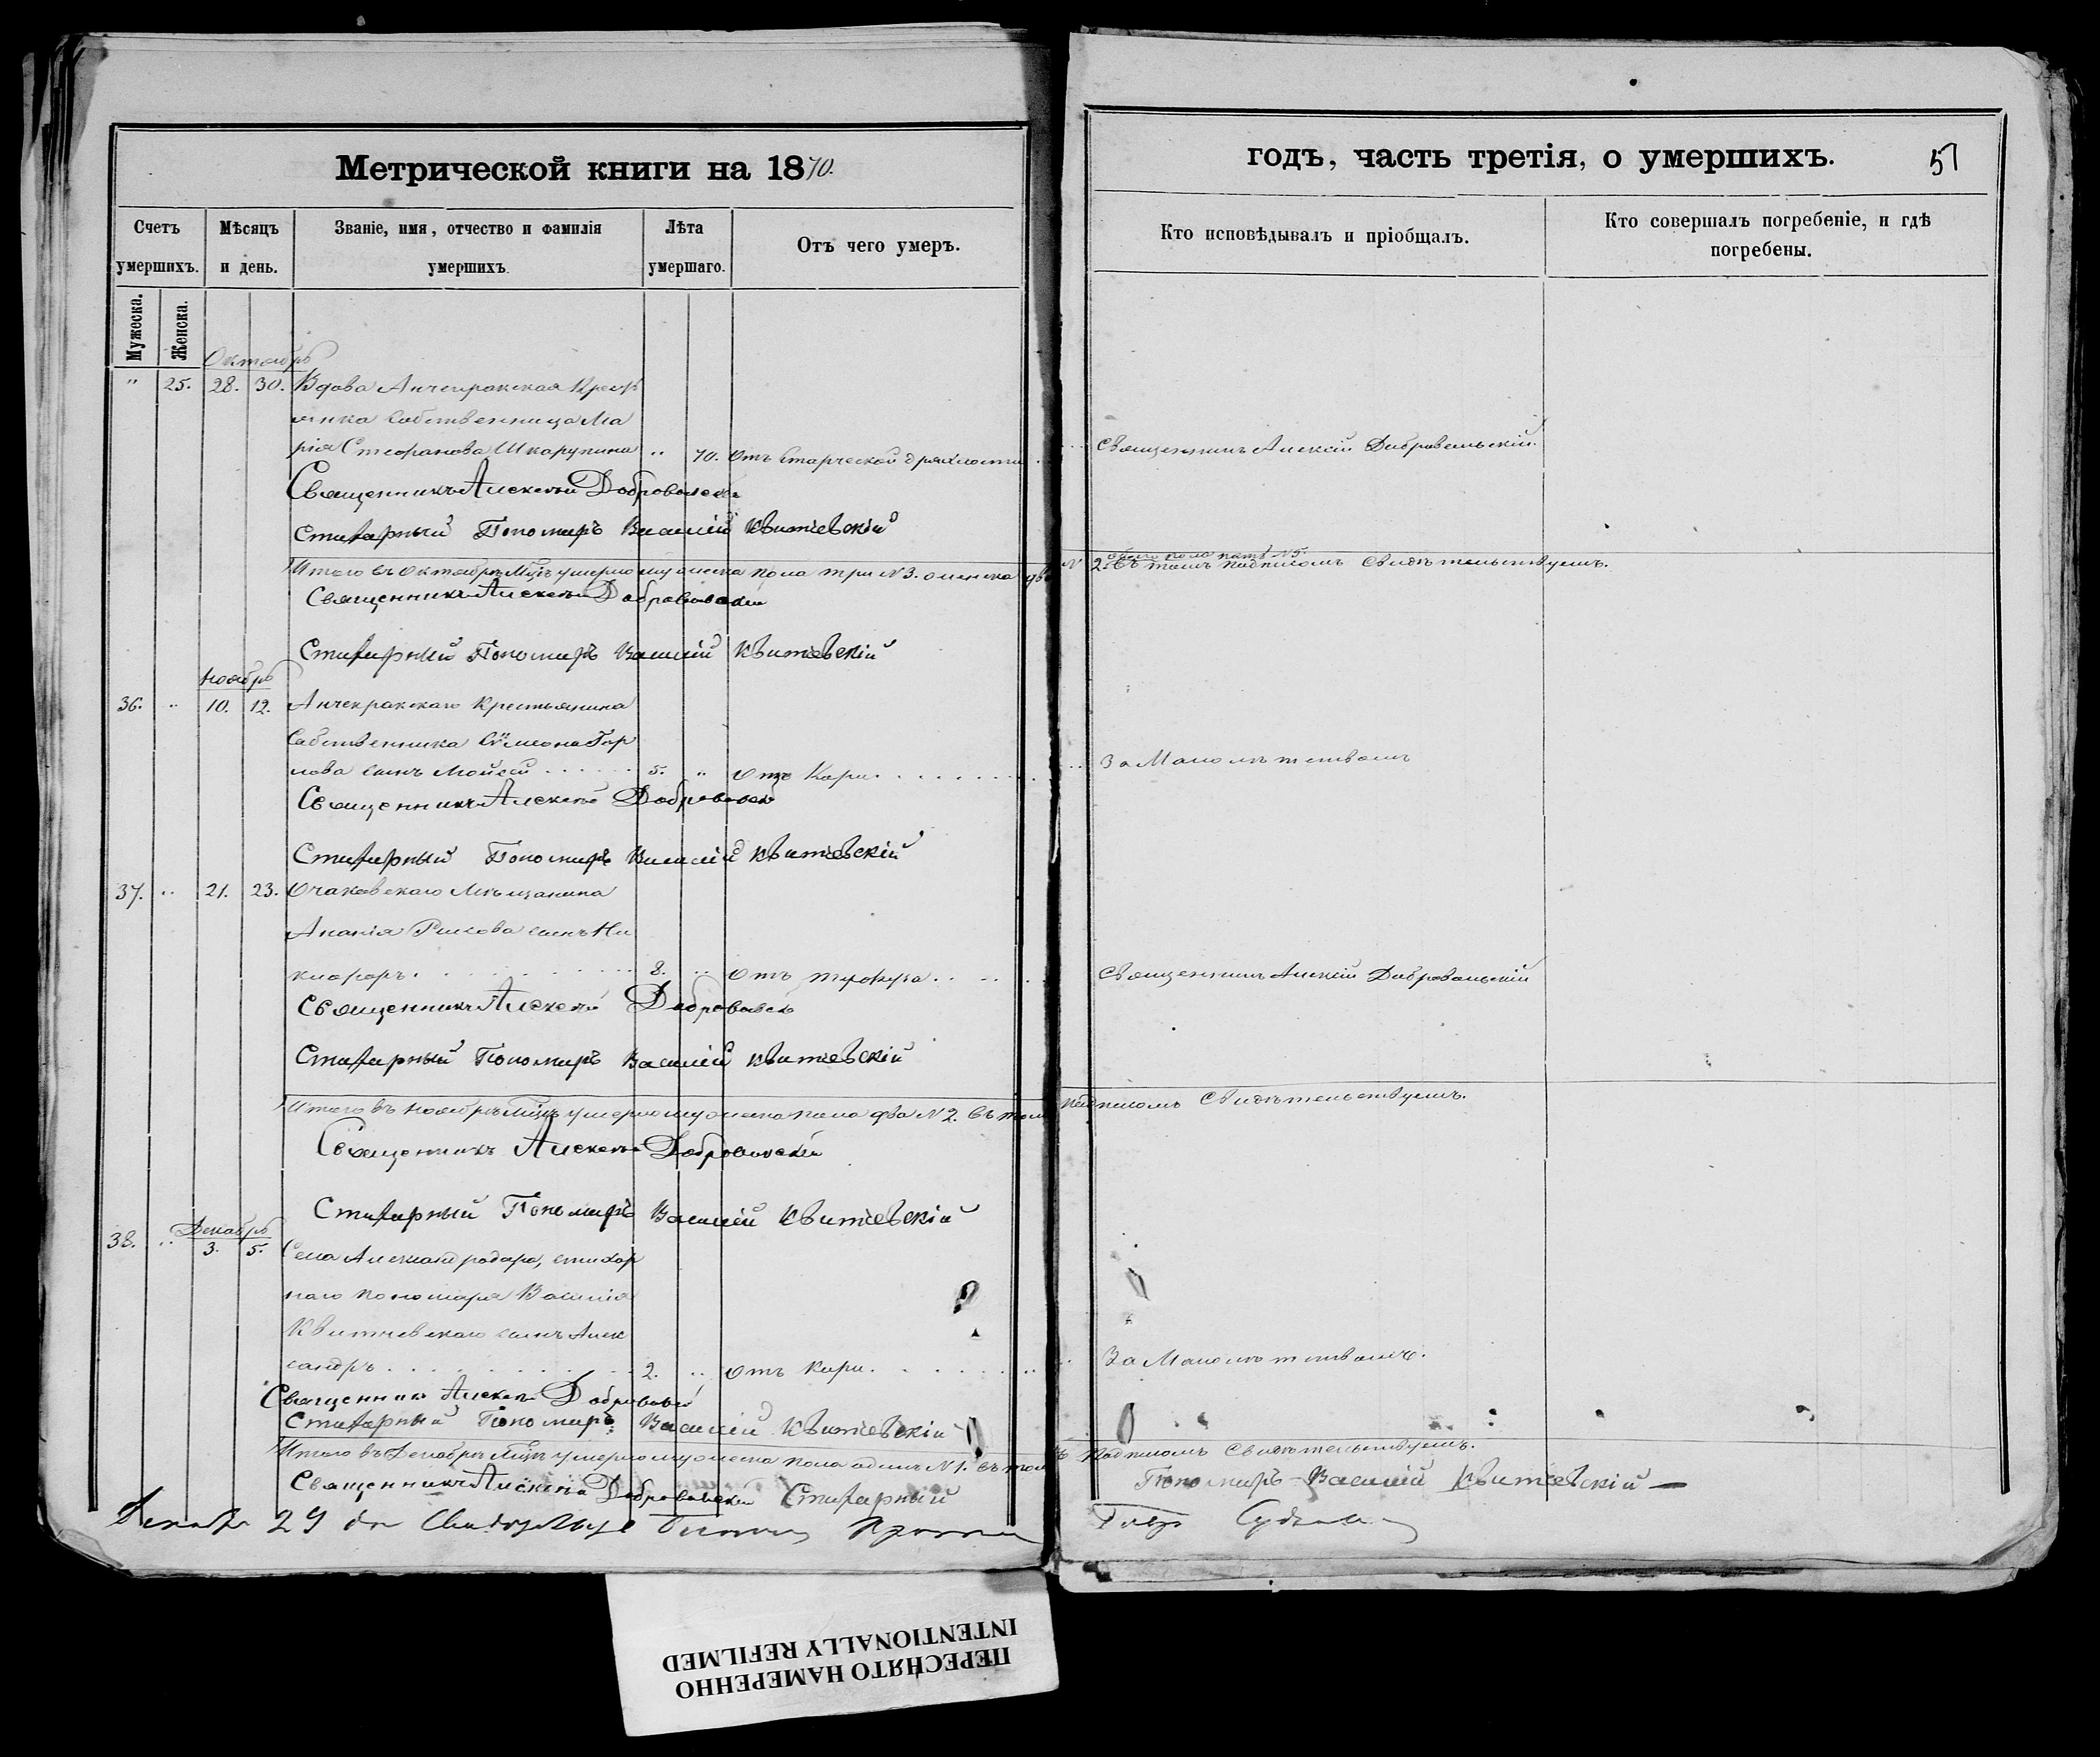 Метрической книги на 1870.
Счетъ умершихъ.
Мѣсяцъ и день.
Званіе, имя, отчество и фамилія умершихъ
Лѣта умершаго.
Отъ чего умеръ.
Мужеска.
Женска.
Октябрь
" 25. 28. 30. Вдова Анчекракская Крестъ
янка Собственница Ма
рія Стефанова Шкарупина .. 70. Отъ Старческой дряхлости
Священникъ Алексѣй Добровольскій
Стихарный Пономарь Василій Квитчевскій
Итого въ Октябрѣ Мцѣ умерло мужеска пола три №3. а женска два
Священникъ Алексѣй Добровольскій
Стихарный Пономарь Василій Квитчевскій
Ноябрь
36. .. 10. 12. Анчекракскаго Крестьянина
Собственника Сѵмеона Гор
лова сынъ Мойсей 5. " Отъ Кори.
Священникъ Алексѣй Добровольскій
Стихарный Пономарь Василій Квитчевскій
37. .. 21. 23. Очаковскаго Мѣщанина
Ананія сынъ Ни
кифоръ. 8. .. Отъ
Священникъ Алексѣй Добровольскій
Стихарный Пономарь Василій Квитчевскій
Итого въ Ноябрѣ Мцѣ умерло мужеска пола два №2. въ томъ
Священникъ Алексѣй Добровольскій
Стихарный Пономарь Василій Квитчевскій
Декабрь
38. .. 3. 5. Села Александродара, стихар
наго пономаря Василія
Квитчевскаго сынъ Алек
сандръ 2. .. Отъ Кори.
Священникъ Алексѣй Добровольскій
Стихарный Пономарь Василій Квитчевскій
Итого въ Декабрѣ Мцѣ умерло мужеска пола одинъ №1. въ томъ
Священникъ Алексѣй Добровольскій Стихарный
29
годъ, часть третія, о умершихъ.
57
Кто исповѣдывалъ и пріобщалъ.
Кто совершалъ погребеніе, и гдѣ погребены.
Священникъ Алексій Добровольскій.
обоего пола пять №5.
№ 2. въ томъ подписомъ Свидѣтельствуемъ.
За Малолѣтствомъ
Священникъ Алексій Добровольскій
подписомъ Свидѣтельствуемъ.
За Малолѣтствомъ.
подписомъ Свидѣтельствуемъ.
Пономарь Василій Квитчевскій
ПЕРЕСНЯТО НАМЕРЕННО
INTENTIONALLY REFILMED